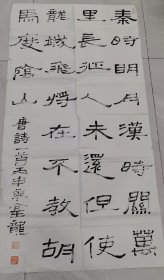 秦時明月漢時關萬
里長征人未還但使
龍城飛將在不教胡
馬度陰山 唐詩一首丙申